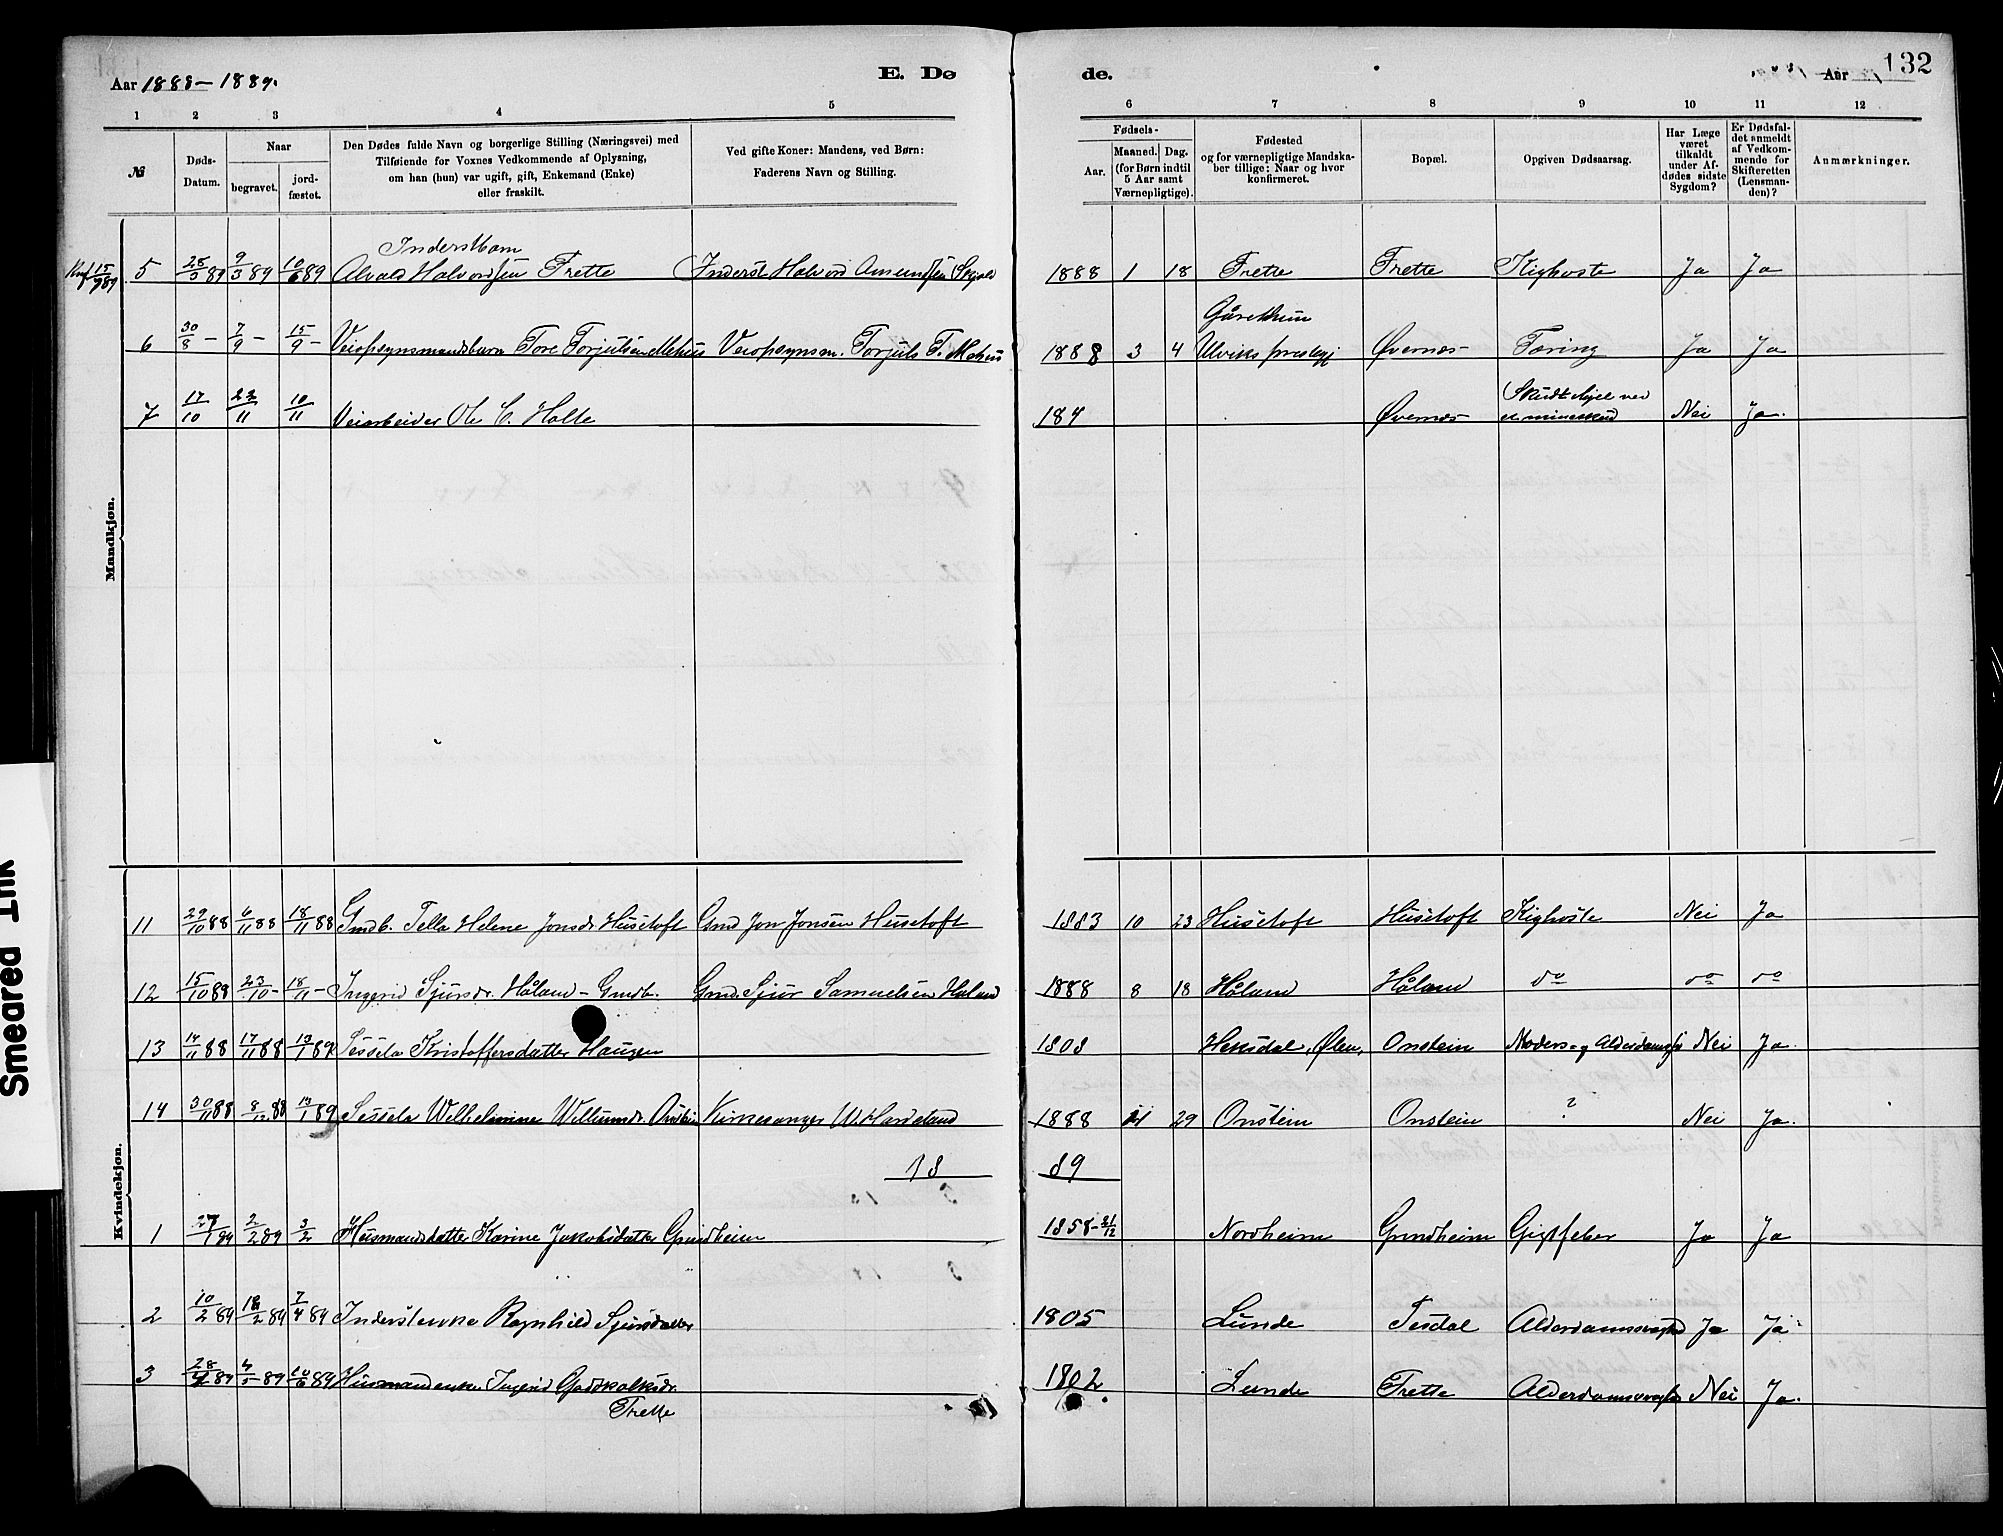 Aar 1888-1889.
E. Dø
de.
Aar
132
1 2 3 4 5 6 7 8 9 10 11 12
№
Døds-Datum.
Naar
begravet.
jord-fæstet.
Den Dødes fulde Navn og borgerlige Stilling (Næringsvei) med
Tilføiende for Voxnes Vedkommende af Oplysning,
om han (hun) var ugift, gift, Enkemand (Enke)
eller fraskilt.
Ved gifte Koner: Mandens, ved Børn:
Faderens Navn og Stilling.
Fødsels-
Aar.
Maaned. Dag.
(for Børn indtil
5 Aar samt
Værnepligtige).
Fødested
og for værnepligtige Mandska-
ber tillige: Naar og hvor
konfirmeret.
Bopæl.
Opgiven Dødsaarsag.
Har Læge
været
tilkaldt
under Af-
dødes sidste
Sygdom?
Er Dødsfal-
det anmeldt
af Vedkom-
mende for
Skifteretten
(Lensman-
den)?
Anmærkninger.
Mandkjøn.
Inderstbarn
5 9/3 89 10/6 89 Alvald Halvordsen Trette Inderst Halvord Amundsen 1888 1 18 Trette Trette Kighoste Ja Ja
6 30/8 - 7/9 - 15/9 - Veiopsynsmandsbarn Tore Torjulsen Mehus Veiopsynsm. Torjuls T. Mehus 1888 3 4 Ulviks prestgj Øvernes Tæring Ja Ja
7 17/10 10/11 Veiarbeider Ole C. Holte 184 Øvernes Skudt ihjel ved
et mineskud Nei Ja.
Kvindekjøn.
11 29/10 88 6/11 88 18/11 88 Gmdb. Tella Helene Jonsdr Husetoft Gmd Jon Jonsen Husetoft 1883 10 23 Husetoft Husetoft Kighoste Nei Ja
12 15/10 88 23/10 - 18/11 - Ingerid Sjursdr. Håland - Gmdb. Gmd. Sjur Samuelsen Håland 1888 8 18 Håland Håland do do do
13 14/11 88 17/11 88 13/1 89 Sessela Kristoffersdatter Haugen 1808 Ølen, Onstein Nei Ja.
14 30/11 88 8/12 88 13/1 89 Sessela Wilhelmine Kirkesanger W. Hardeland 1888 11 29 Onstein Onstein ? Nei Ja.
18 89
1 27/1 89 2/2 89 3/2 Husmandsdatter Karine Jakobsdatter Grindheim 1858-21/12 Nordheim Grindheim Gigtfeber Ja Ja
2 10/2 89 18/2 89 7/4 89 Inderstenke Ragnhild Sjursdatter 1805 Lunde Tesdal Alderdomssvaghed Ja Ja
3 28/4 89 4/5 89 10/6 89 Husmandenke Ingerid Godskalksdr.
Trette 1802 Lunde Trette Alderdomssvagh Nei Ja.
Smeared Ink